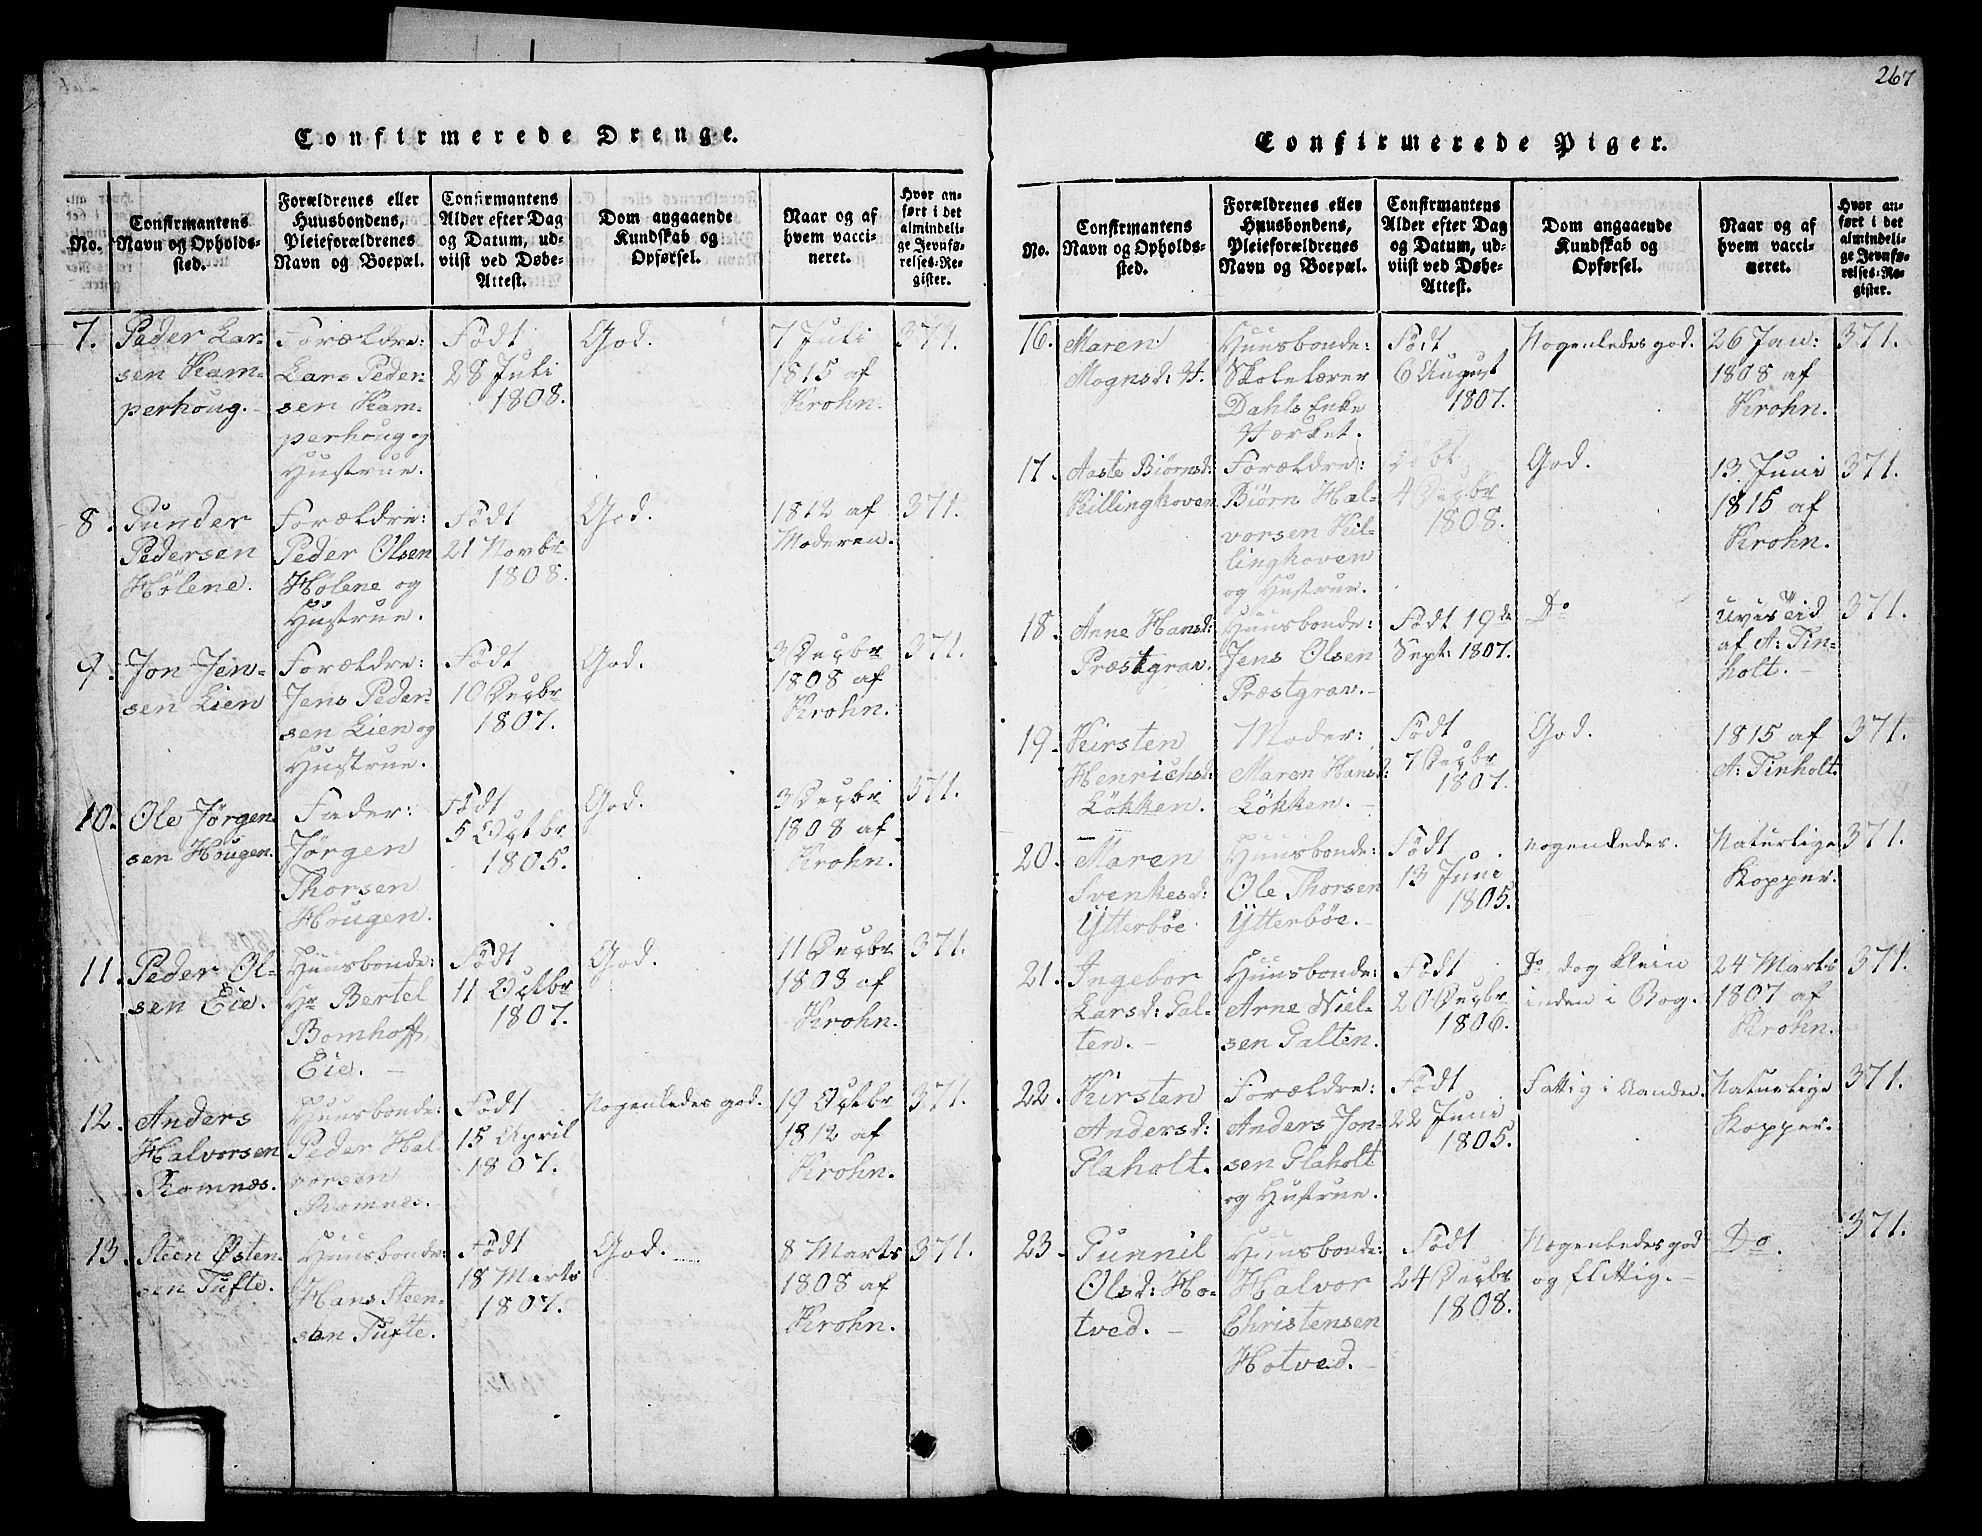 267
Confirmerede Drenge.
No.
Confirmantens
Navn og Opholds-
sted.
Forældrenes eller
Huusbondens,
Pleieforældrenes
Navn og Boepæl.
Confirmantens
Alder efter Dag
og Datum, ud-
viist ved Døbe-
Attest.
Dom angaaende
Kundskab og
Opførsel.
Naar og af
hvem vacci-
neret.
Hvor an-
ført i det
almindeli-
ge Jevnfø-
relses-Re-
gister.
7.
Peder Lar-
sen Kam-
perhoug.
Forældre:
Lars Peder-
sen Kam-
perhoug og
Hustrue.
Født
28 Juli
1808.
God.
7 Juli
1815 af
Krohn.
371.
8.
Gunder
Pedersen
Hølene.
Forældre:
Peder Olsen
Hølene og
Hustrue.
Født
21 Novbr
1808.
God.
1812 af
Moderen.
371.
9.
Jon Jen-
sen Lien
Forældre:
Jens Peder-
sen Lien og
Hustrue.
Født
10 Decbr
1807.
God.
3 Decbr
1808 af
Krohn.
371.
10.
Ole Jørgen-
sen Hougen.
Fader:
Jørgen
Thorsen
Hougen.
Født
5 Octbr
1805.
God.
3 Decbr
1808 af
Krohn.
371.
11.
Peder Ol-
sen Eie.
Huusbonde:
Hr Bertel
Bomhoff
Eie.
Født
11 Octbr
1807.
God.
11 Decbr
1808 af
Krohn.
371.
12.
Anders
Halvorsen
Romnæs.
Huusbonde:
Peder Hal-
vorsen
Romnæs.
Født
15 April
1807.
Nogenledes god.
19 Octbr
1812 af
Krohn.
371.
13.
Steen Østen-
sen Tufte.
Huusbonde:
Hans Steen-
sen Tufte.
Født
18 Marts
1807.
God.
8 Marts
1808 af
Krohn.
371.
Confirmerede Piger.
No.
Confirmantens
Navn og Opholds-
sted.
Forældrenes eller
Huusbondens,
Pleieforældrenes
Navn og Boepæl.
Confirmantens
Alder efter Dag
og Datum, ud-
viist ved Døbe-
Attest.
Dom angaaende
Kundskab og
Opførsel.
Naar og af
hvem vacci-
neret.
Hvor an-
ført i det
almindeli-
ge Jevnfø-
relses-Re-
gister.
16.
Maren
Mognsd: H.
Huusbonde:
Skolelærer
Dahls Enke
Hærket.
Født
6 August
1807.
Nogenledes god.
26 Jan:
1808 af
Krohn.
371.
17.
Aaste Biørnsd:
Killinghoven
Forældre:
Biørn Hal-
vorsen Kil-
linghoven
og Hustrue.
Døbt
4 Decbr
1808.
God.
13 Juni
1815 af
Krohn.
371.
18.
Anne Hansd:
Præstgrav.
Huusbonde:
Jens Olsen
Præstgrav.
Født 19de
Sept: 1807.
Do
uvis Tid
af A: Tin-
holt.
371.
19.
Kirsten
Henrichsd:
Løkken.
Moder:
Maren Hansd:
Løkken.
Født
7 Decbr
1807.
God.
1815 af
A: Tinholt.
371.
20.
Maren
Svenkesd:
Ytterbøe
Huusbonde:
Ole Thorsen
Ytterbøe.
Født
13 Juni
1805.
nogenledes.
Naturlige
Kopper.
371.
21.
Ingebor
Larsd: Gal-
ten.
Huusbonde:
Arne Niel-
sen Galten.
Født
20 Decbr
1806.
Do dog klein
inden i Bog.
24 Marts
1807 af
Krohn.
371.
22.
Kirsten
Andersd:
Glaholt.
Forældre:
Anders Jon-
sen Glaholt
og Hustrue.
Født
22 Juni
1805.
Fattig i Aanden.
Naturlige
Kopper.
371.
23.
Gunnil
Olsd: Ho-
tved.
Huusbonde:
Halvor
Christensen
Hotved.
Født
24 Decbr
1808.
Nogenledes god
og flittig.
Do.
371.